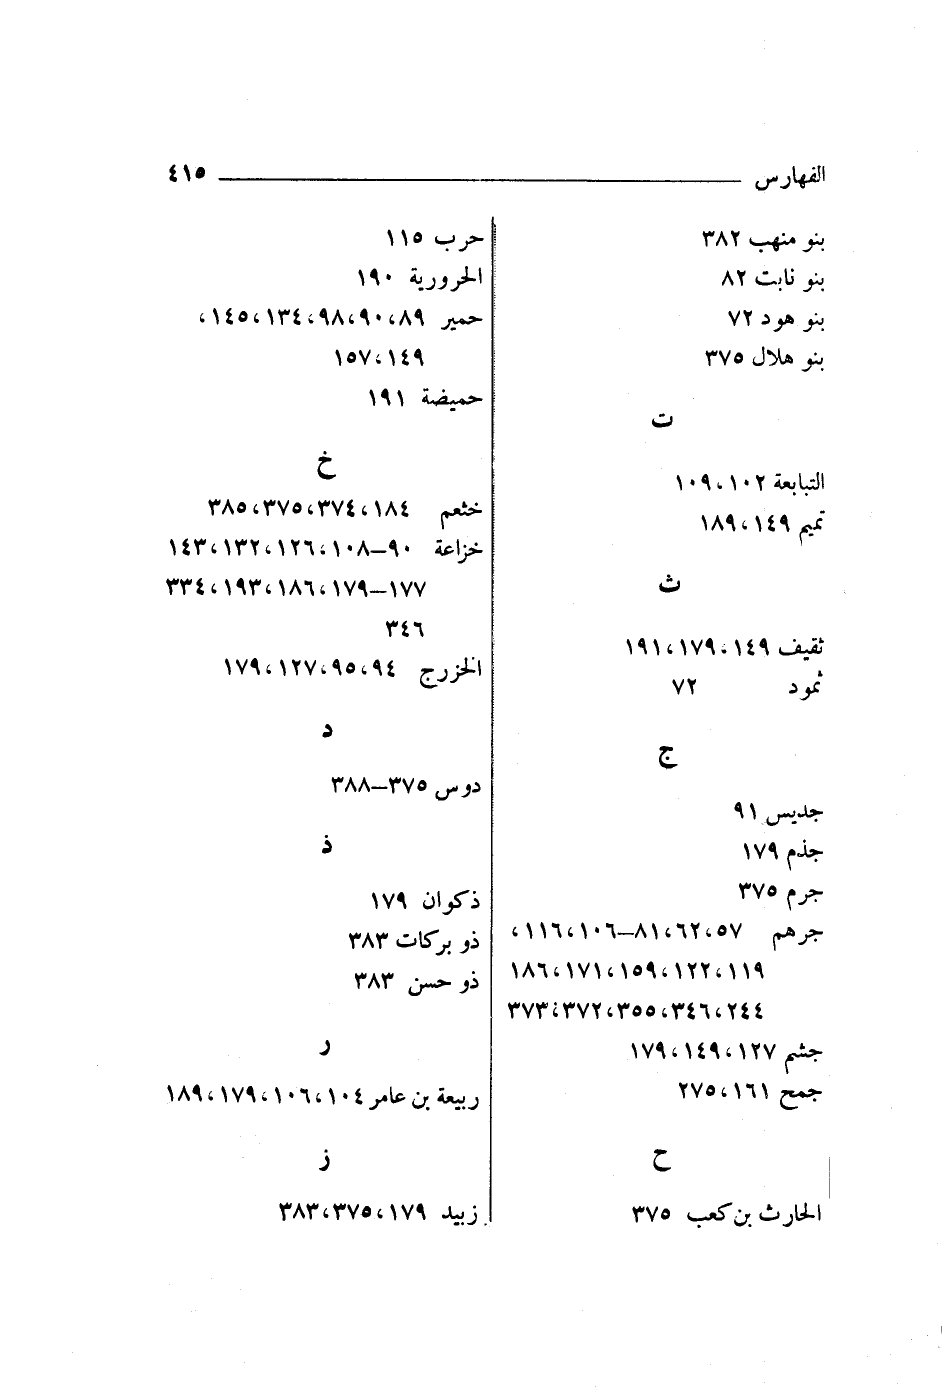 الفهارس ٤١٥
بنو منهب ٣٨٢
بنو نابت ٨٢
بنو هود ٧٢
بنو هلال ٣٧٥
ت
التبابعة ١٠٢،١٠٩
تميم ١٤٩،١٨٩
ث
ثقيف ١٤٩،١٧٩،١٩١
ثمود ٧٢
ج
جديس ٩١
جذم ١٧٩
جرم ٣٧٥
جرهم ٥٧،٦٢،٨١–١٠٦،١١٦،
١١٩،١٢٢،١٥٩،١٧١،١٨٦
٢٤٤،٣٤٦،٣٥٥،٣٧٢،٣٧٣
جشم ١٢٧،١٤٩،١٧٩
جمح ١٦١،٢٧٥
ح
الحارث بن كعب ٣٧٥
حرب ١١٥
الحرورية ١٩٠
حمير ٨٩،٩٠،٩٨،١٣٤،١٤٥،
١٤٩،١٥٧
حميضة ١٩١
خ
خثعم ١٨٤،٣٧٤،٣٧٥،٣٨٥
خزاعة ٩٠–١٠٨،١٢٦،١٣٢،١٤٣
١٧٧–١٧٩،١٨٦،١٩٣،٣٣٤
٣٤٦
الخزرج ٩٤،٩٥،١٢٧،١٧٩
د
دوس ٣٧٥–٣٨٨
ذ
ذكوان ١٧٩
ذو بركات ٣٨٣
ذو حسن ٣٨٣
ر
ربيعة بن عامر ١٠٤،١٠٦،١٧٩،١٨٩
ز
زبيد ١٧٩،٣٧٥،٣٨٣